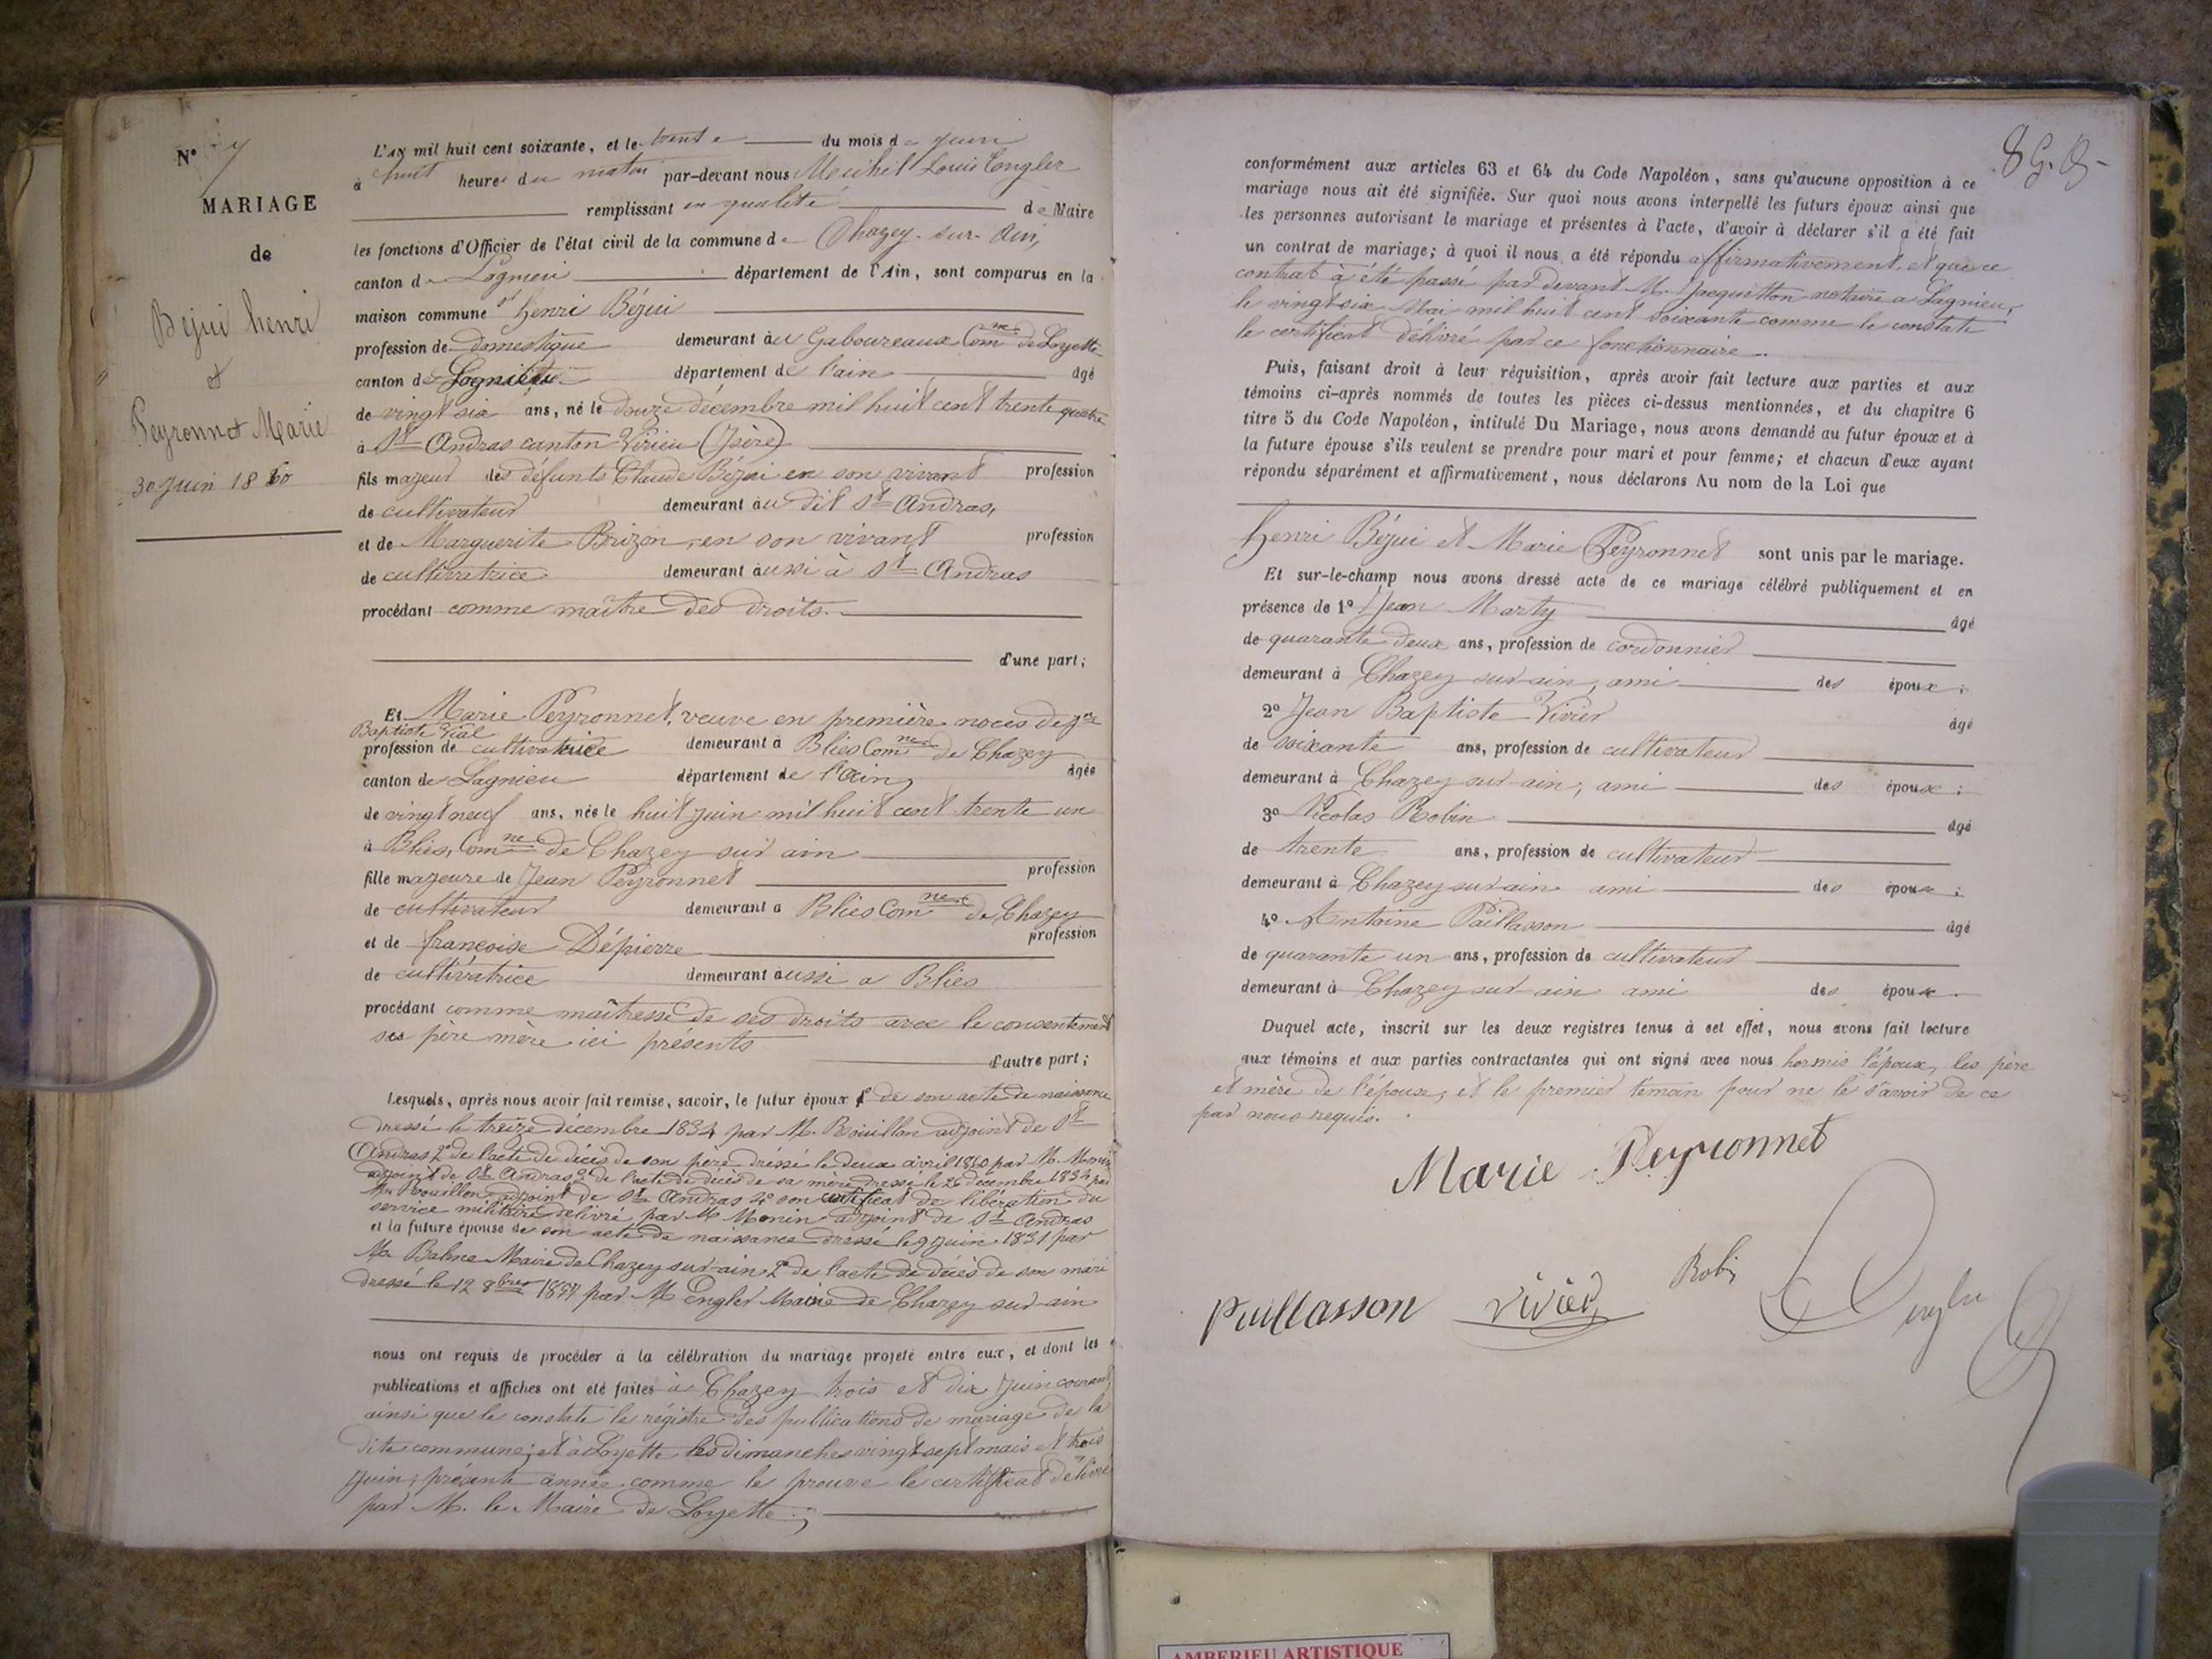 N° 7
MARIAGE
de
Béjui henri
et
Peyronnet Marie
30 Juin 1860
L'AN mil huit cent soixante, et le trente du mois de Juin
à huit heures du matin par-devant nous Michel Louis Engler
remplissant en qualité de Maire
les fonctions d'Officier de l'état civil de la commune de Chazey-sur-Ain,
canton de Lagnieu département de l'Ain, sont comparus en la
maison commune st henri Béjui
profession de domestique demeurant au Gaboureaux Comne de Loyette
canton de Lagnieu département de l'ain âgé
de vingt six ans, né le douze décembre mil huit cent trente quatre
à St Andras canton Virieu (Isère)
fils majeur des défunts Claude Béjui en son vivant profession
de cultivateur demeurant au dit St Andras,
et de Marguerite Brizon, en son vivant profession
de cultivatrice demeurant aussi à St Andras
procédant comme maître des droits.
d'une part;
Et Marie Peyronnet, veuve en première noces de Jn
Baptiste Vial
profession de cultivatrice demeurant à Blies Comne de Chazey
canton de Lagnieu département de l'Ain, âgée
de vingt neuf ans, née le huit juin mil huit cent trente un
à Blies, Comne de Chazey sur ain
fille majeure de Jean Peyronnet profession
de cultivateur demeurant a Blies Comne de Chazey
et de françoise Dépierre profession
de cultivatrice demeurant aussi a Blies
procédant comme maîtresse de ses droits avec le consentement
ses père mère ici présents
d'autre part;
Lesquels, après nous avoir fait remise, savoir, le futur époux 1° de son acte de naissance
dressé le treize décembre 1834 par M. Rouillon adjoint de St
Andras 2° de l'acte de décès de son père dressé le deux avril 1840 par M. Monin
adjoint de St Andras 3° de l'acte de décès de sa mère dressé le 26 décembre 1834 par
Mr Rouillon adjoint de St Andras 4° son certificat de libération du
service militaire délivré par M Monin adjoint de St Andras
et la future épouse de son acte de naissance dressé le 9 juin 1831 par
Mr Balme Maire de Chazey sur-ain 2° de l'acte de décès de son mari
dressé le 12 8bre 1857 par M Engler Maire de Chazey sur-ain
nous ont requis de procéder à la célébration du mariage projeté entre eux, et dont les
publications et affiches ont été faites à Chazey trois et dix Juin courant,
ainsi que le constate le régistre des publications de mariage de la
dite commune; et à Loyette les dimanches vingt-sept mais et trois
Juin, présente année comme le prouve le certificat délivré
par M. le Maire de Loyette;
conformément aux articles 63 et 64 du Code Napoléon, sans qu'aucune opposition à ce
mariage nous ait été signifiée. Sur quoi nous avons interpellé les futurs époux ainsi que
les personnes autorisant le mariage et présentes à l'acte, d'avoir à déclarer s'il a été fait
un contrat de mariage; à quoi il nous a été répondu affirmativement, et que ce
contrat à été passé par devant Mr Jacquetton notaire a Lagnieu,
le vingt six Mai mil huit cent soixante comme le constate
le certificat délivré par ce fonctionnaire.
Puis, faisant droit à leur réquisition, après avoir fait lecture aux parties et aux
témoins ci-après nommés de toutes les pièces ci-dessus mentionnées, et du chapitre 6
titre 5 du Code Napoléon, intitulé Du Mariage, nous avons demandé au futur époux et à
la future épouse s'ils veulent se prendre pour mari et pour femme; et chacun d'eux ayant
répondu séparément et affirmativement, nous déclarons Au nom de la Loi que
henri Béjui et Marie Peyronnet sont unis par le mariage.
Et sur-le-champ nous avons dressé acte de ce mariage célébré publiquement et en
présence de 1° Jean Marty âgé
de quarante deux ans, profession de cordonnier
demeurant à Chazey sur-ain, ami des époux;
2° Jean Baptiste Vivier âgé
de soixante ans, profession de cultivateur
demeurant à Chazey sur-ain, ami des époux;
3° Nicolas Robin âgé
de trente ans, profession de cultivateur
demeurant à Chazey sur ain ami des époux;
4° Antoine Paillasson âgé
de quarante un ans, profession de cultivateur
demeurant à Chazey sur-ain ami des époux.
Duquel acte, inscrit sur les deux registres tenus à cet effet, nous avons fait lecture
aux témoins et aux parties contractantes qui ont signé avec nous hormis l'époux, les père
et mère de l'épouse, et le premier témoin pour ne le savoir de ce
par nous requis.
Marie Peyronnet
Paillasson Vivier Robin Engler
AMBERIEU ARTISTIQUE